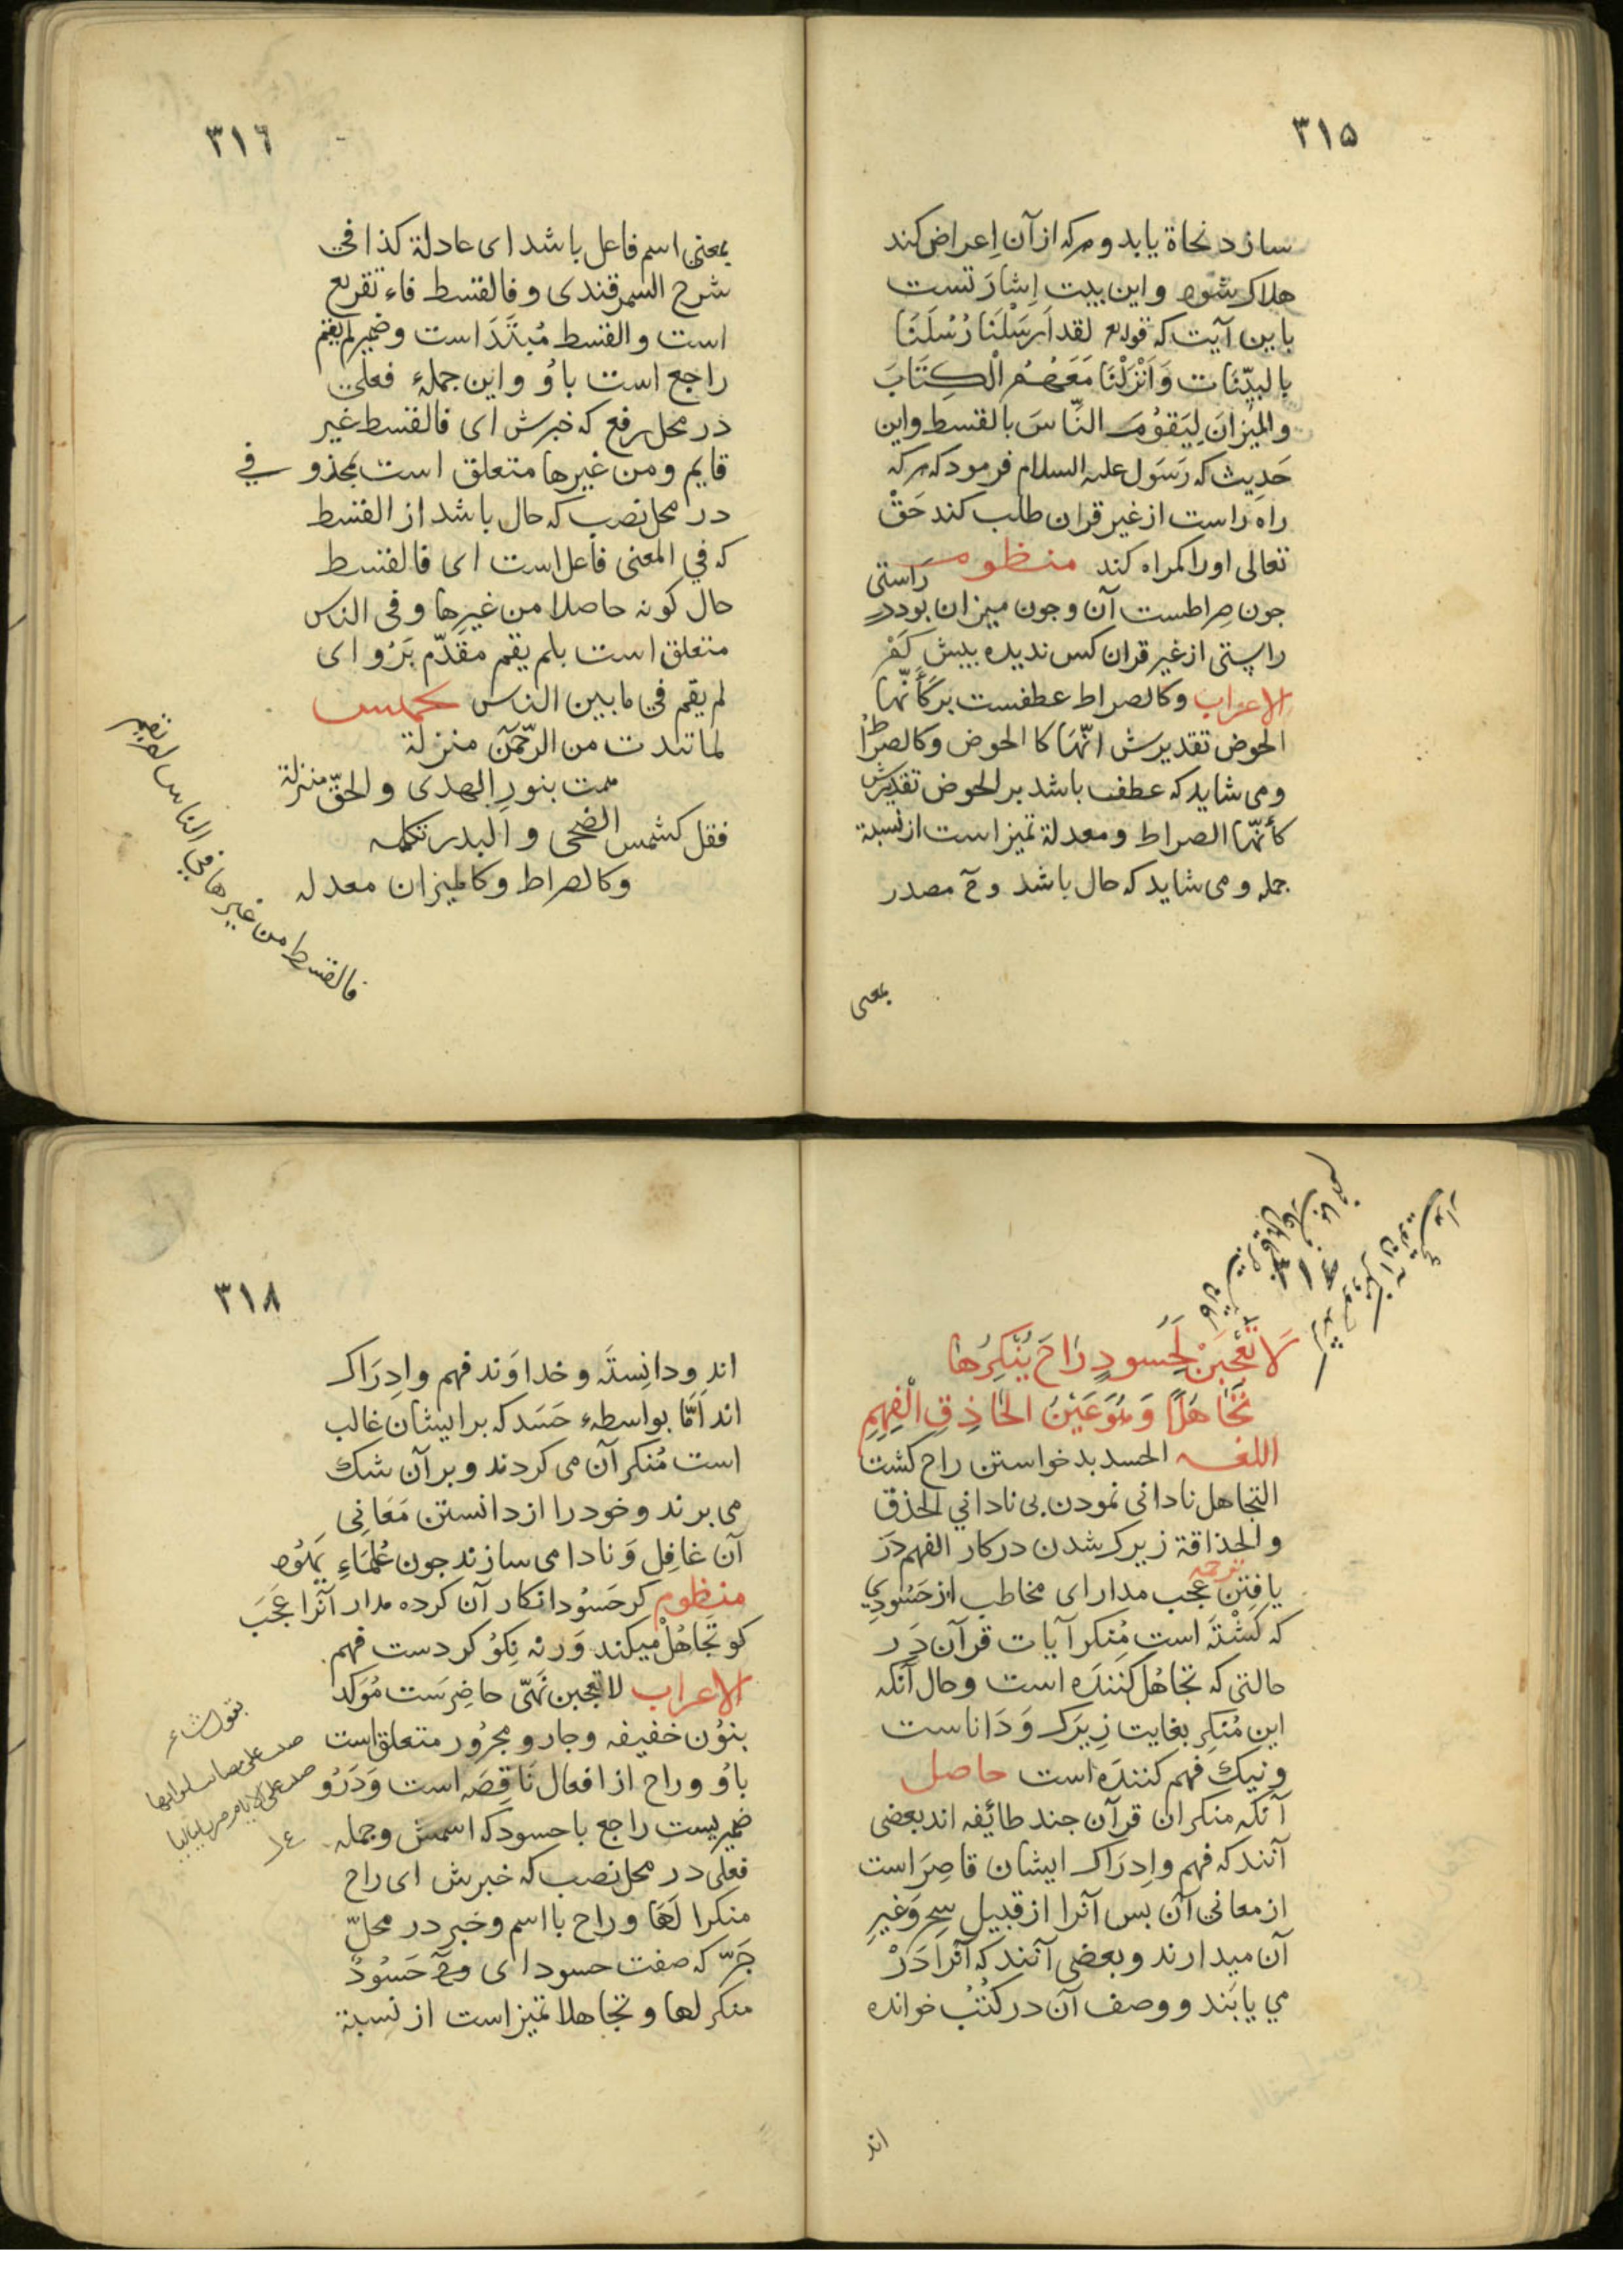 ٣١٥
سازد نجاة یابد و هرکه از آن اِعراض کند
هلاک شود و این بیت اِشارَتست
با این آیت که قوله تع لقد اَرسَلْنَا رُسُلَنَا
بالبیّنَات وَاَنْزَلْنَا مَعَهُمُ الْکِتَابَ
والمیزانَ لِیَقوُمَ النَّاسَ بالقسط و این
حَدِیث که رَسَول علیه السلام فرمود که هرکه
راه راست از غیر قران طلب کند حَقْ
تعالی اورا کمراه کند منظومه
جون صِراطست آن و جون میزان بود در راستی
راستی از غیر قران کس ندیده بیش کَمْ
الاعراب وکالصراط عطفست بر کَأَنّهَا
الحوض تقدیرش انّهَا کا الحوض وکالصراط
ومی شاید که عطف باشد بر الحوض تقدیرش
کأنّها الصراط ومعدلة تمیز است از نسبة
جمله و می شاید که حال باشد وح مصدر
بمعنی
٣١٦
بمعنی اسم فاعل باشد ای عادلة کذا فی
شرح السمرقندی و فالقسط فاء تفریع
است و القسط مُبتَدَا است و ضمیر لم یقم
راجع است باوُ و این جملهٔ فعلی
در محل رفع که خبرش ای فالقسط غیر
قایم و من غیرها متعلق است بمحذوفی
در محل نصب که حال باشد از القسط
که فی المعنی فاعل است ای فالقسط
حال کونه حاصلا من غیرها و فی الناس
متعلق است بلم یقم مقَدّم بَرُو ای
لم یقم فی ما بین الناس تخمیس
لما تبدت من الرّحمَن منزلة
ممت بنورِ الهدی و الحقّ منزلة
فقل کشمس الضحی و البدر تکلمه
وکالصراط وکالمیزان معدله
فالقسط من غیرها فی الناس لم یقم
لَا تَعْجَبَنْ لِحَسودٍ رَاحَ یُنْکِرُهَا
تَجَاهُلًا وَهُوَ عَیْنُ الحَاذِقِ الْفَهِمِ
اللغه الحسد بد خواستن راح کشت
التجاهل نادانی نمودن بی نادانی الحذق
والحذاقة زیرک شدن در کار الفهم دَرْ
یافتن ترجمه عجب مدار ای مخاطب از حَسُودِی
که کَشْتَه است مُنِکر آیات قرآن دَر
حالتی که تجاهُل کنَنده است و حال آنکه
این مُنکِر بغایت زِیرَک وَ دَاناست
و نیک فهم کننده است حاصل
آنکه منکران قرآن جند طائفه اند بعضی
آنند که فهم و اِدرَاک ایشان قاصِرَ است
از معانی آن بس آنرا از قبیل سِحِر وَغَیرِ
آن میدارند و بعضی آنند که آنرا دَرْ
می یابَند و وصف آن در کتُبْ خوانده
اند
٣١٨
اند و دانِستَه و خداوَند فهم و اِدرَاک
اند اَمّا بواسطهء حَسَد که بر ایشان غالب
است مُنکر آن می کردند و بر آن شک
می برند و خود را از دانستن مَعَانِی
آن غافِل وَ نادا می سازند جون عُلَمَاءِ یَهوُد
منظوم کر حَسوُد انکار آن کرده مدار آنرا عَجَبَ
کو تَجَاهُلْ میکند وَرنه نِکوُ کردست فهم
الاعراب لا تعجبن نَهیّ حاضِرَست مُوَکد
بنوُن خفیفه و جار و مجرُور متعلق است
باوُ و راح از افعال نَاقِصَه است وَ دَرُو
ضمیریست راجع با حسود که اسمش و جمله
فعلی در محل نصب که خبرش ای راح
منکرا لَهَا و راح با اسم و خبر در محلّ
جَرّ که صفت حسود ای حَسُودٌ
منکر لها و تجاهلا تمیز است از نسبة